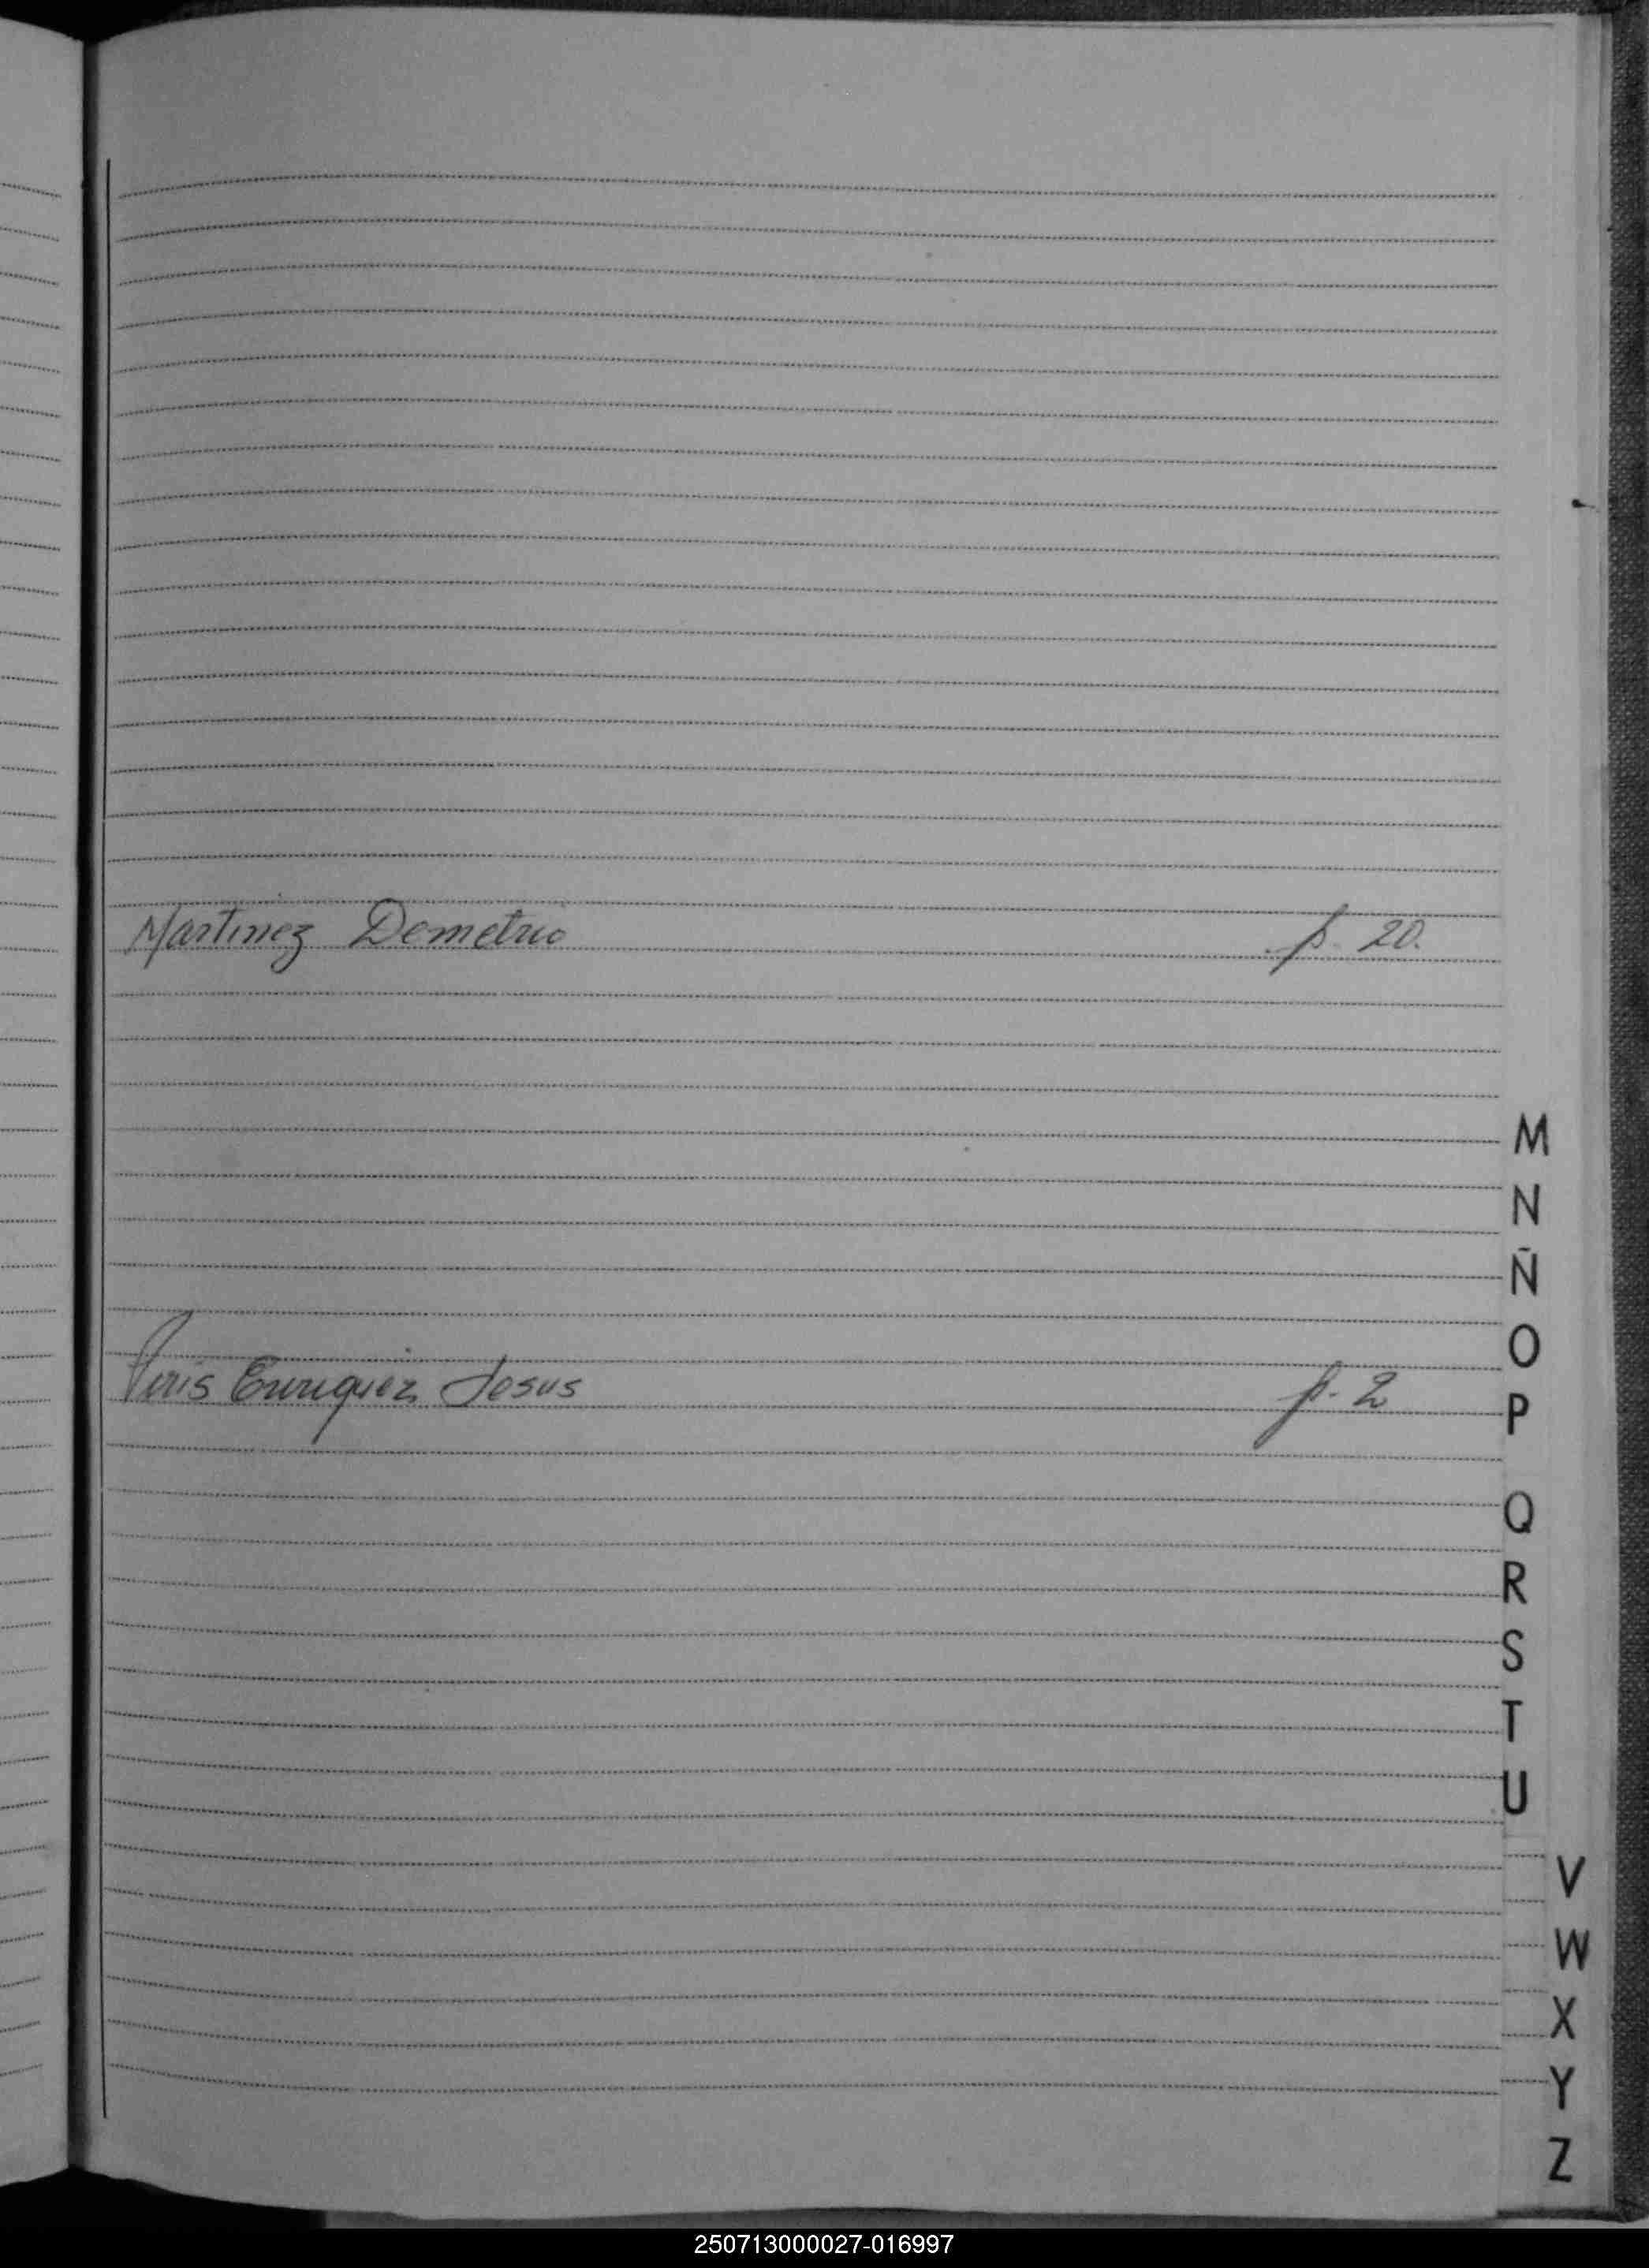 Martinez Demetrio p. 20.
M
N
Ñ
O
Enriquez Jesus p. 2
P
Q
R
S
T
U
V
W
X
Y
Z
250713000027-016997